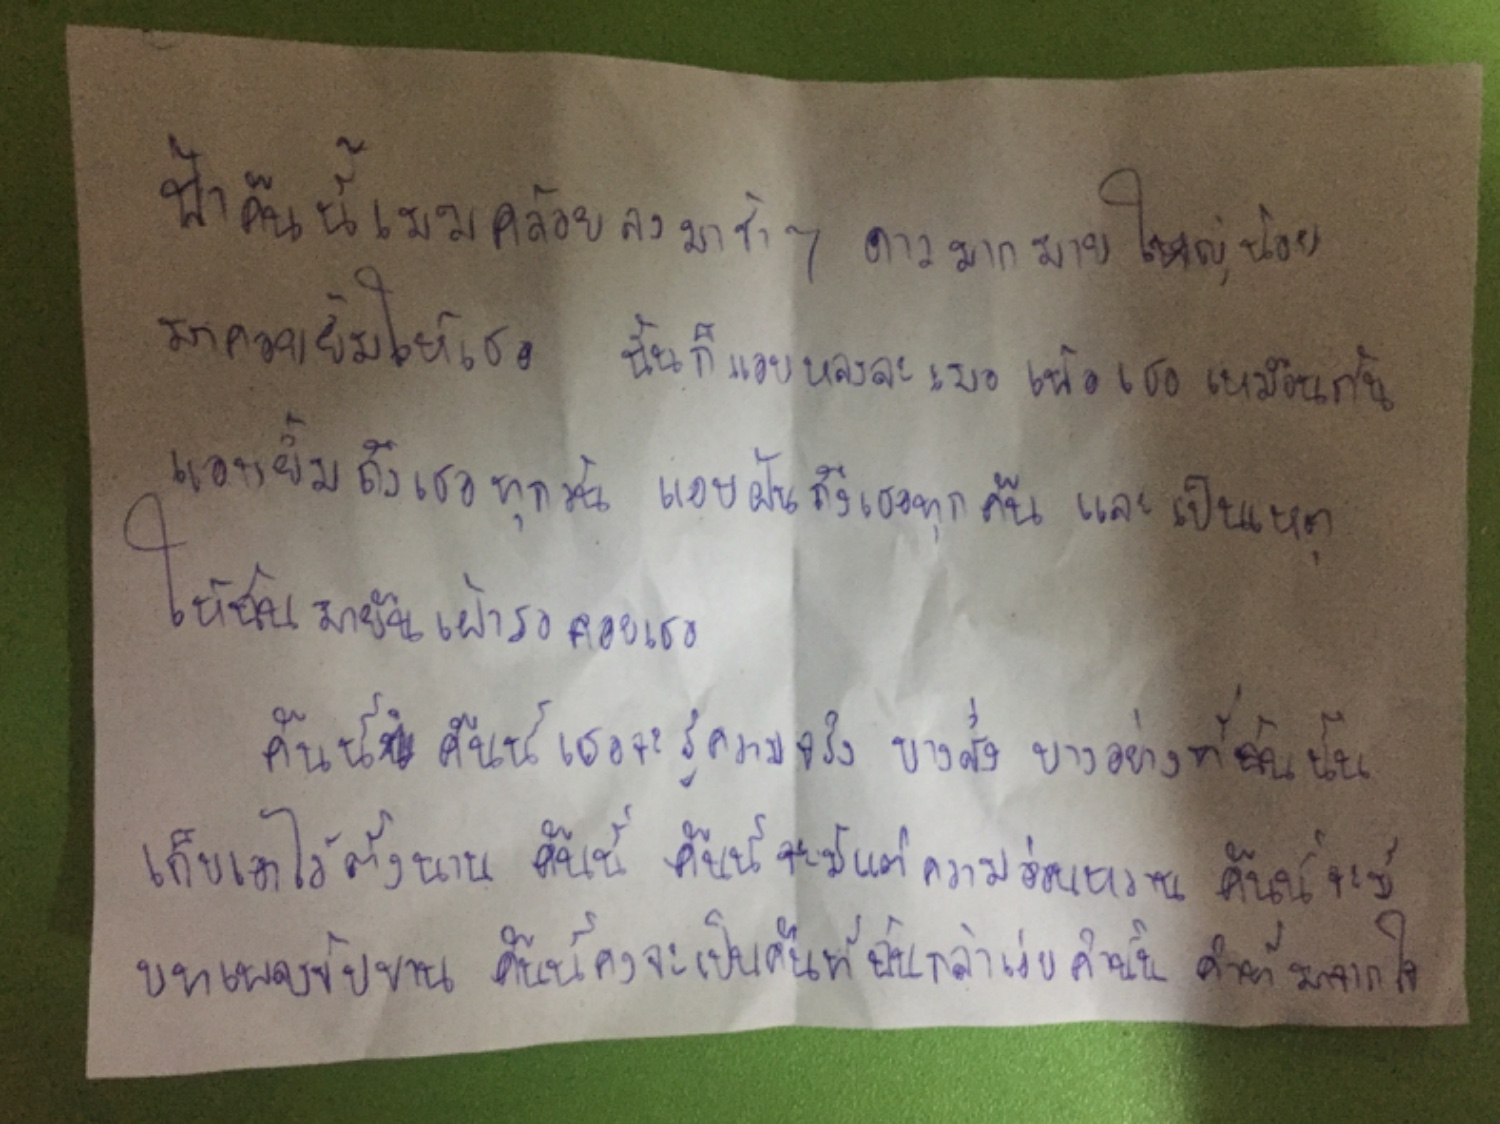 ฟ้าคืนนี้เมฆคล้อยลงมาช้าๆ ดาวมากมายใหญ่น้อย
มาคอยยิ้มให้เธอ ฉันก็แอบหลงละเมอ เพ้อ เธอ เหมือนกัน
แอบยิ้มถึงเธอทุกวัน แอบฝันถึงเธอทุกคืน และเป็นเหตุ
ให้ฉันมายืนเฝ้ารอคอยเธอ
คืนนี้ คืนนี้เธอจะรู้ความจริง บางสิ่ง บางอย่างที่ฉันนั้น
เก็บเอาไว้ตั้งนาน คืนนี้ คืนนี้จะมีแต่ความอ่อนหวาน คืนนี้จะมี
บทเพลงขับขาน คืนนี้คงจะเป็นคืนที่ฉันกล้าเอ่ยคำนั้น คำที่มาจากใจ